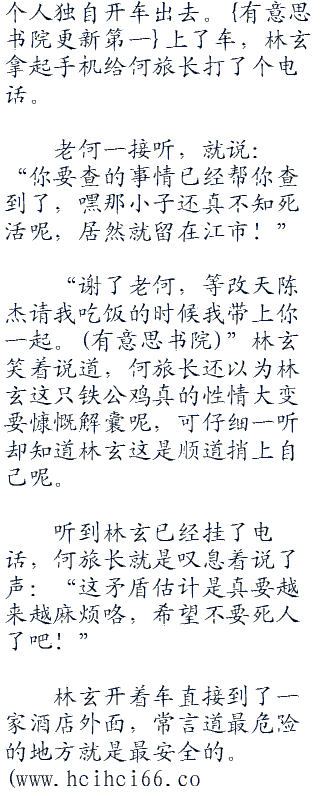 个人独自开车出去。{有意思
书院更新第一}上了车，林玄
拿起手机给何旅长打了个电
话。
老何一接听，就说：
“你要查的事情已经帮你查
到了，嘿那小子还真不知死
活呢，居然就留在江市！”
“谢了老何，等改天陈
杰请我吃饭的时候我带上你
一起。(有意思书院)”林玄
笑着说道，何旅长还以为林
玄这只铁公鸡真的性情大变
要慷慨解囊呢，可仔细一听
却知道林玄这是顺道捎上自
己呢。
听到林玄已经挂了电
话，何旅长就是叹息着说了
声：“这矛盾估计是真要越
来越麻烦咯，希望不要死人
了吧！”
林玄开着车直接到了一
家酒店外面，常言道最危险
的地方就是最安全的。
(www.hcihci66.co